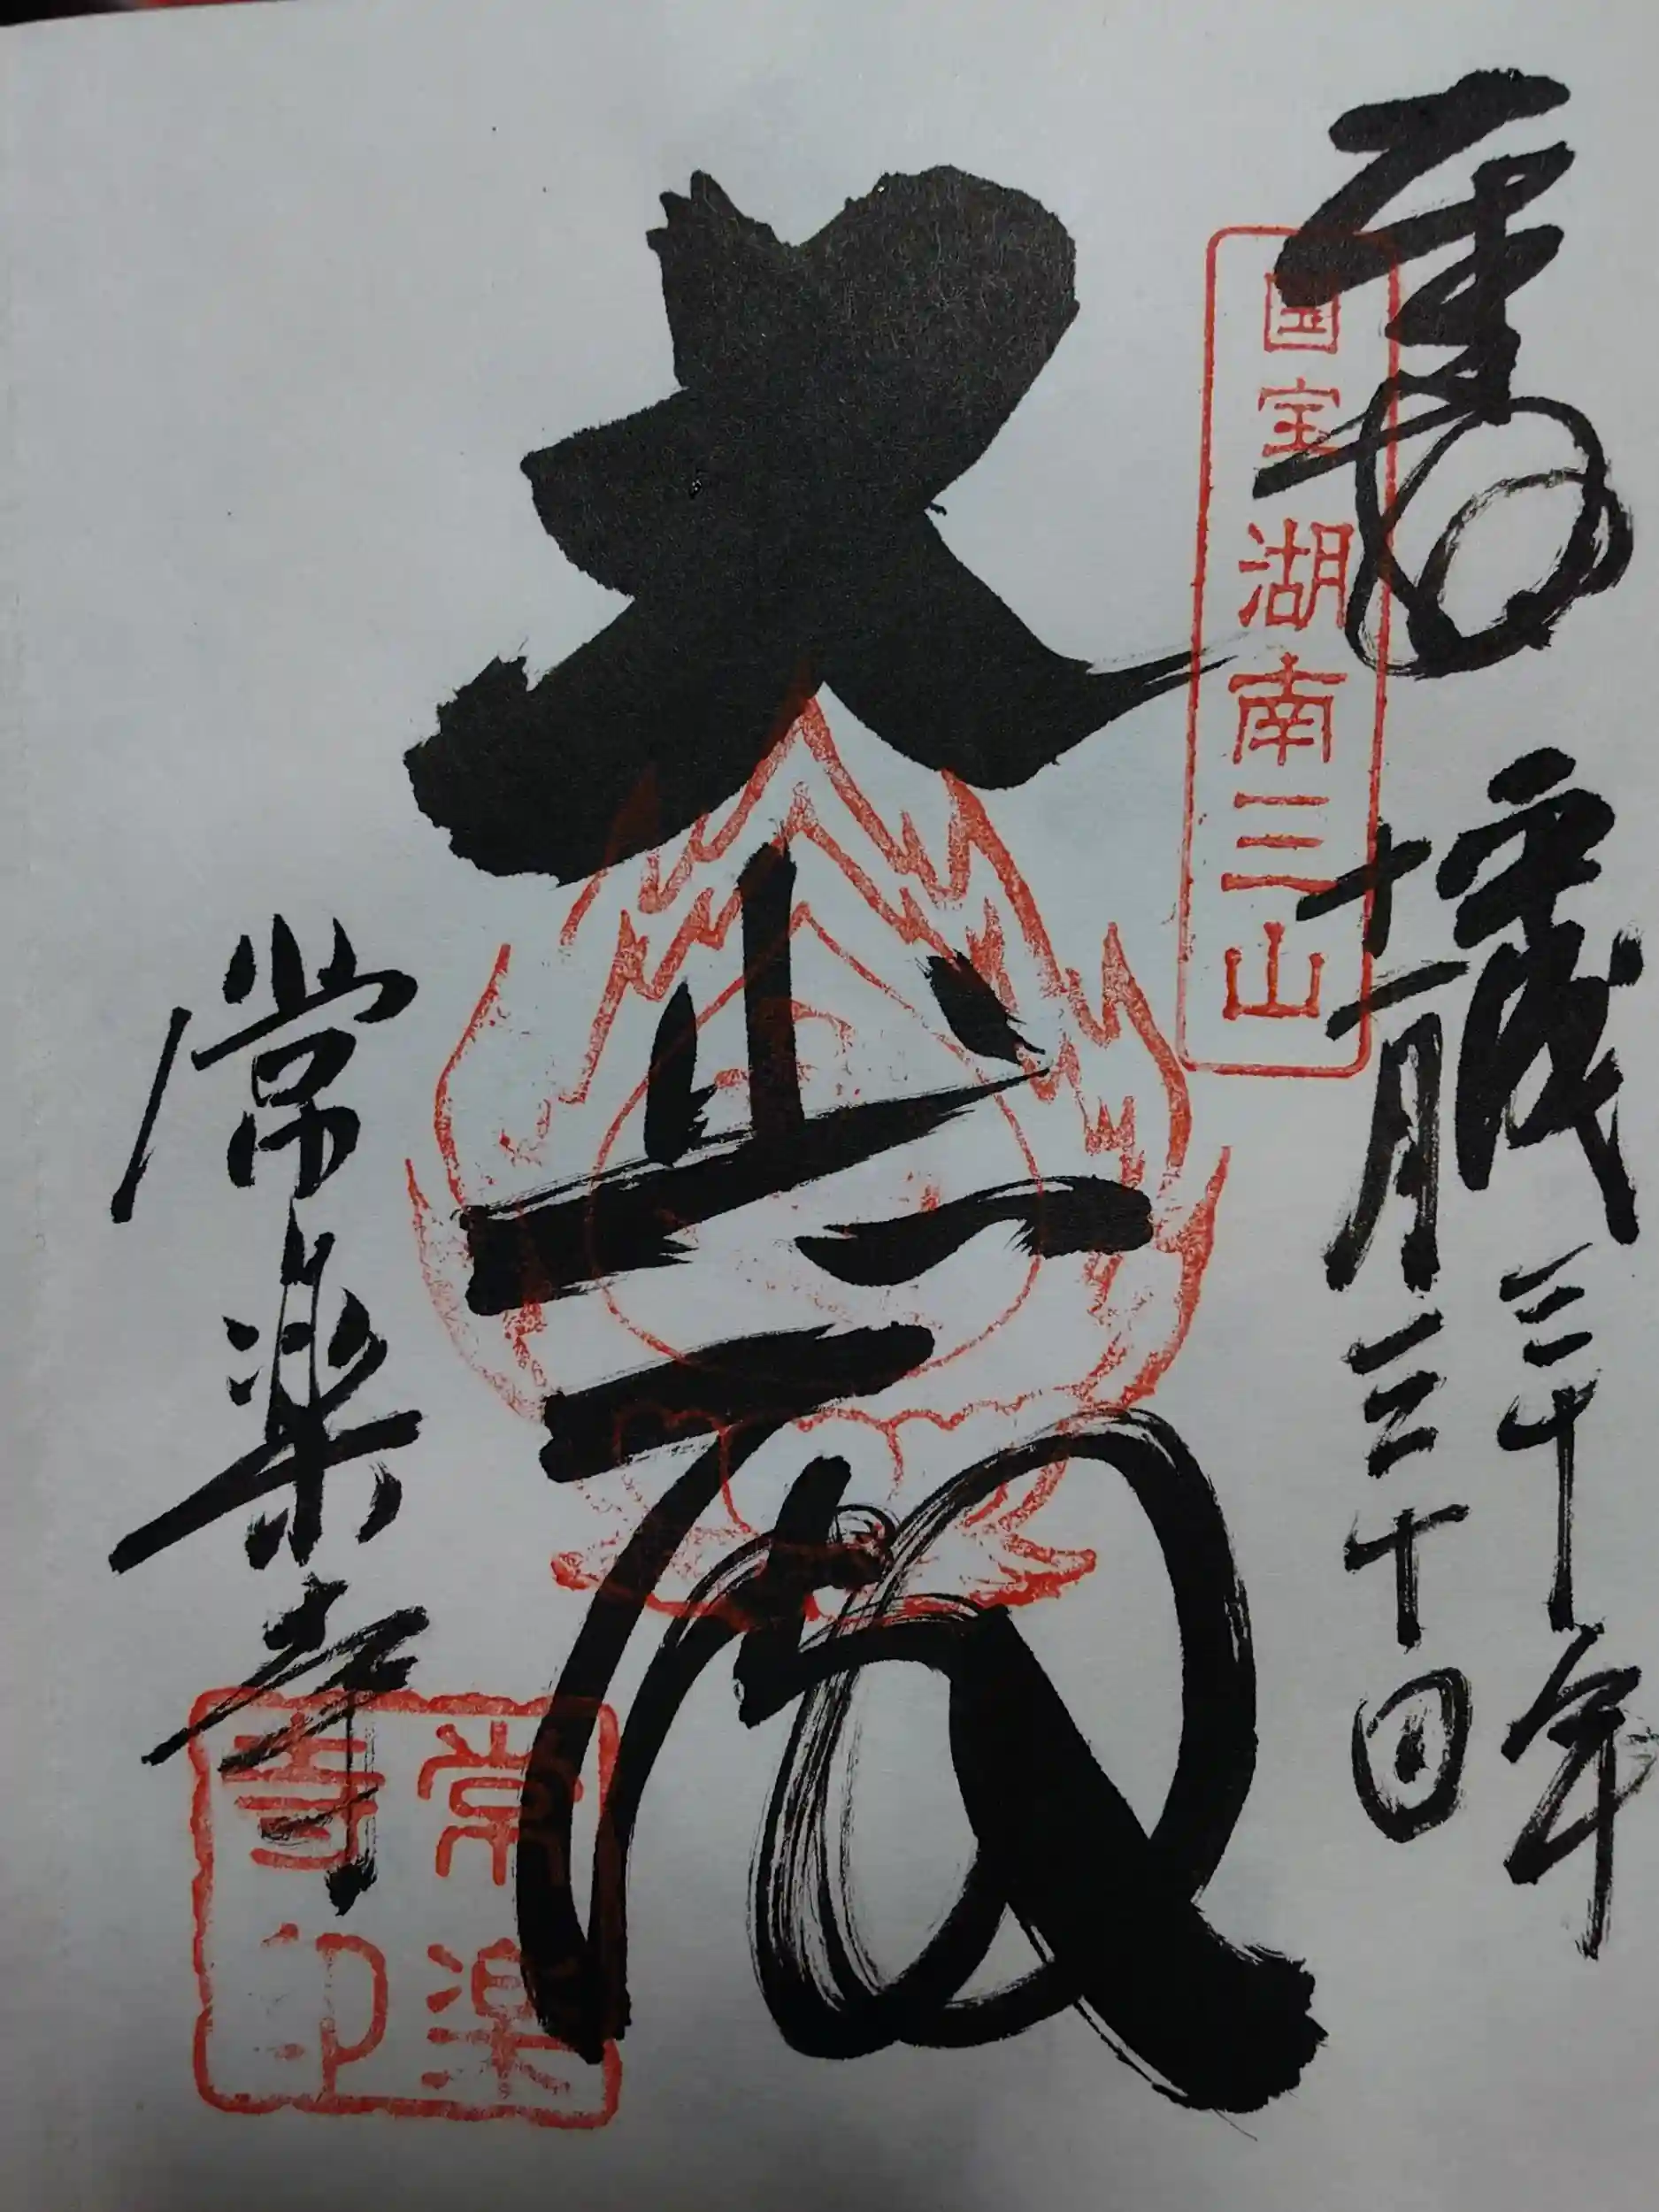 平成三十年
十一月三十日
国宝湖南三山
大悲殿
常楽寺
常楽
寺印